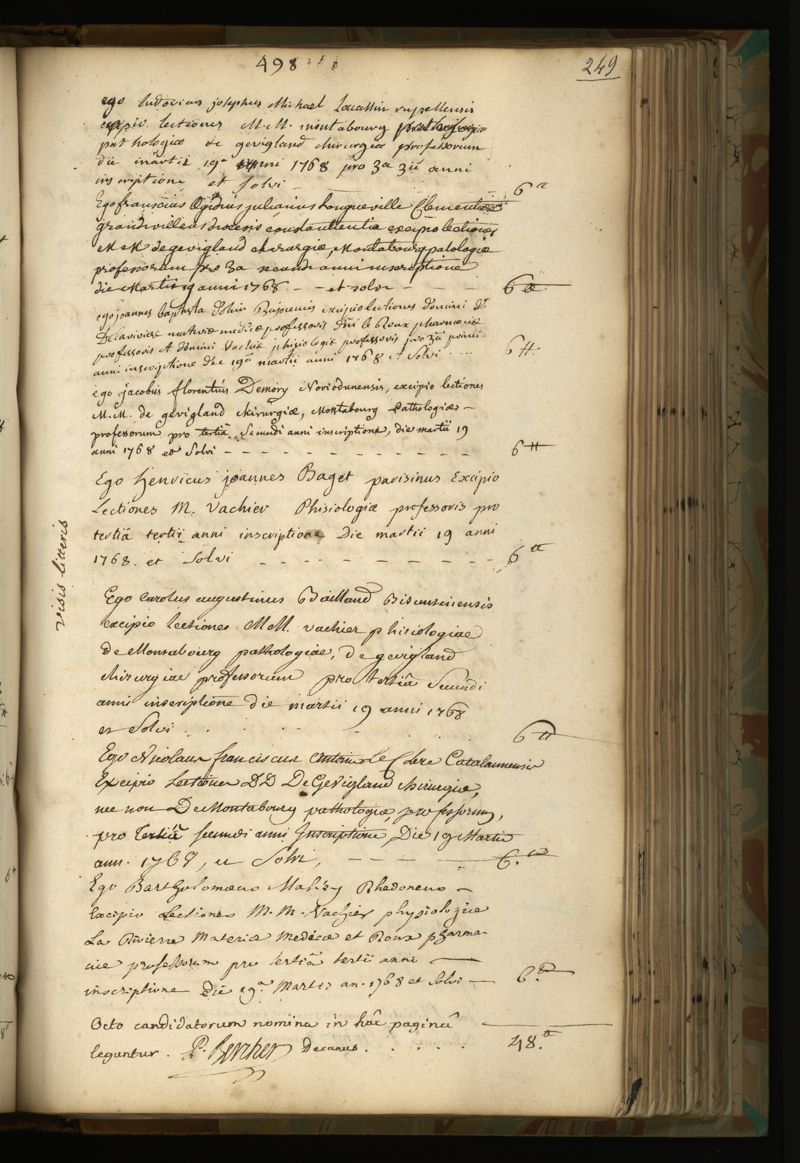 498
249
ego ludovicus josephus Michael Lacassin rupellensis
excipio lectiones M.M. montabourg
pathologiæ de gevigland chirurgiæ professorum
die martii 19a anni 1768 pro 3a 3ii anni
inscriptione et solvi 6 tt
Ego franciscus Egidius julianus Longueville Clementii
grandivillensis diocesis constantientia excipio lectiones
M M de gevigland chirurgiæ, Montabourg patologiæ
professorum pro 3a secundi anni inscriptione
die Martii 19 anni 1768 - - et solvi - 6 tt
ego joannes baptista excipio lectiones domini
De la riviere materiæ medicæ professoris dni le Roux pharmaciæ
professoris et domini Vachié phisiologiæ professoris pro 3a primi
anni inscriptione die 19a martii anni 1768 et Solvi . . . 6 tt
ego jacobus florentius Demory Noviodunensis, excipio lectiones
M.M. de gevigland chirurgiæ, Montabourg Pathologiæ -
professorum pro tertiâ Secundi anni inscriptione, die martii 19
anni 1768 et Solvi - - - - - - - - - - - 6 tt
Ego henricus joannes Baget parisinus Excipio
Lectiones M. Vachier Phisiologiæ professoris pro
tertiâ tertii anni inscriptione Die martii 19 anni
1768. et Solvi - - - - - - - - - - 6 tt
visis litteris
Ego Carolus augustinus Bailland Bisuntinensis
excipio lectiones M.M. vachier phisiologiae
de Montabourg pathologiae, de gevigland
chirurgiae professorum pro tertiâ Secundi
anni inscriptione die martii 19 anni 1768
et Solvi . . . . . . 6 tt
Ego Nicolaus franciscus Antoine le Clere Catalaunensis
Excipio Lectiones DD De Gevigland chirurgiæ,
nec non De Montabourg pathologiæ, professorum,
pro tertiâ secundi anni Inscriptione, Die 19 Martii
ann. 1768, et Solvi, - - - - 6. tt
Ego Bartholomœus Mahey Rhedoneus -
Excipio Lectiones M. M. Vachier physiologiæ
La Riviere Materiæ Medicæ et Roux pharma-
ciæ professorum pro tertiâ tertii anni -
inscriptione Die 19a Martii an. 1768 et Solvi - 6. tt
Octo candidatorum nomina in hâc paginâ
leguntur. P. Bercher Decanus . . . . . 48. tt